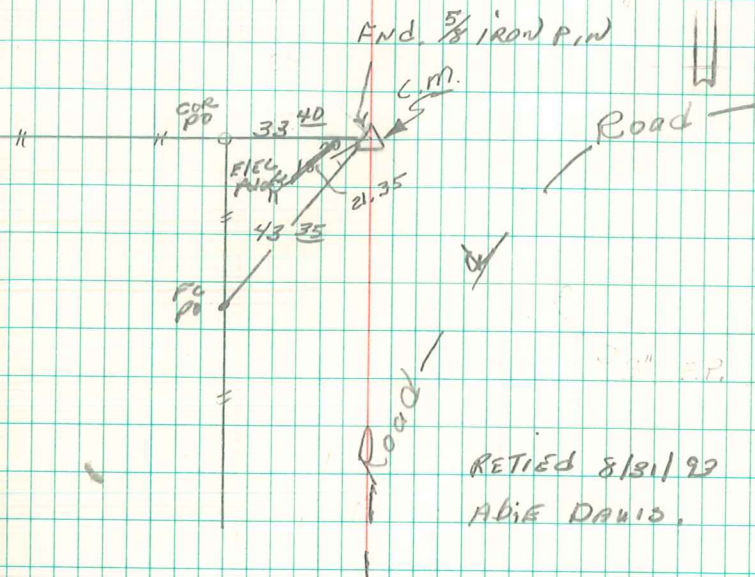 FNd. 5/8 IRON PIN
C.M.
COR
PO
33 40
Road
ElEC
21.35
43 35
PO
Road
RETIEd 8/31/93
AbiE DAVIS.